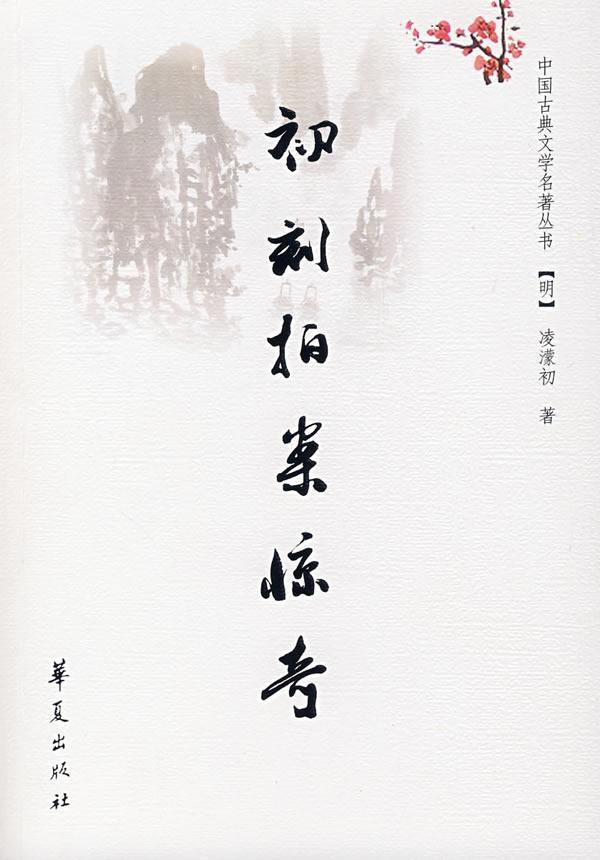 中国古典文学名著丛书【明】 凌濛初 著
初刻拍案惊奇
華夏出版社